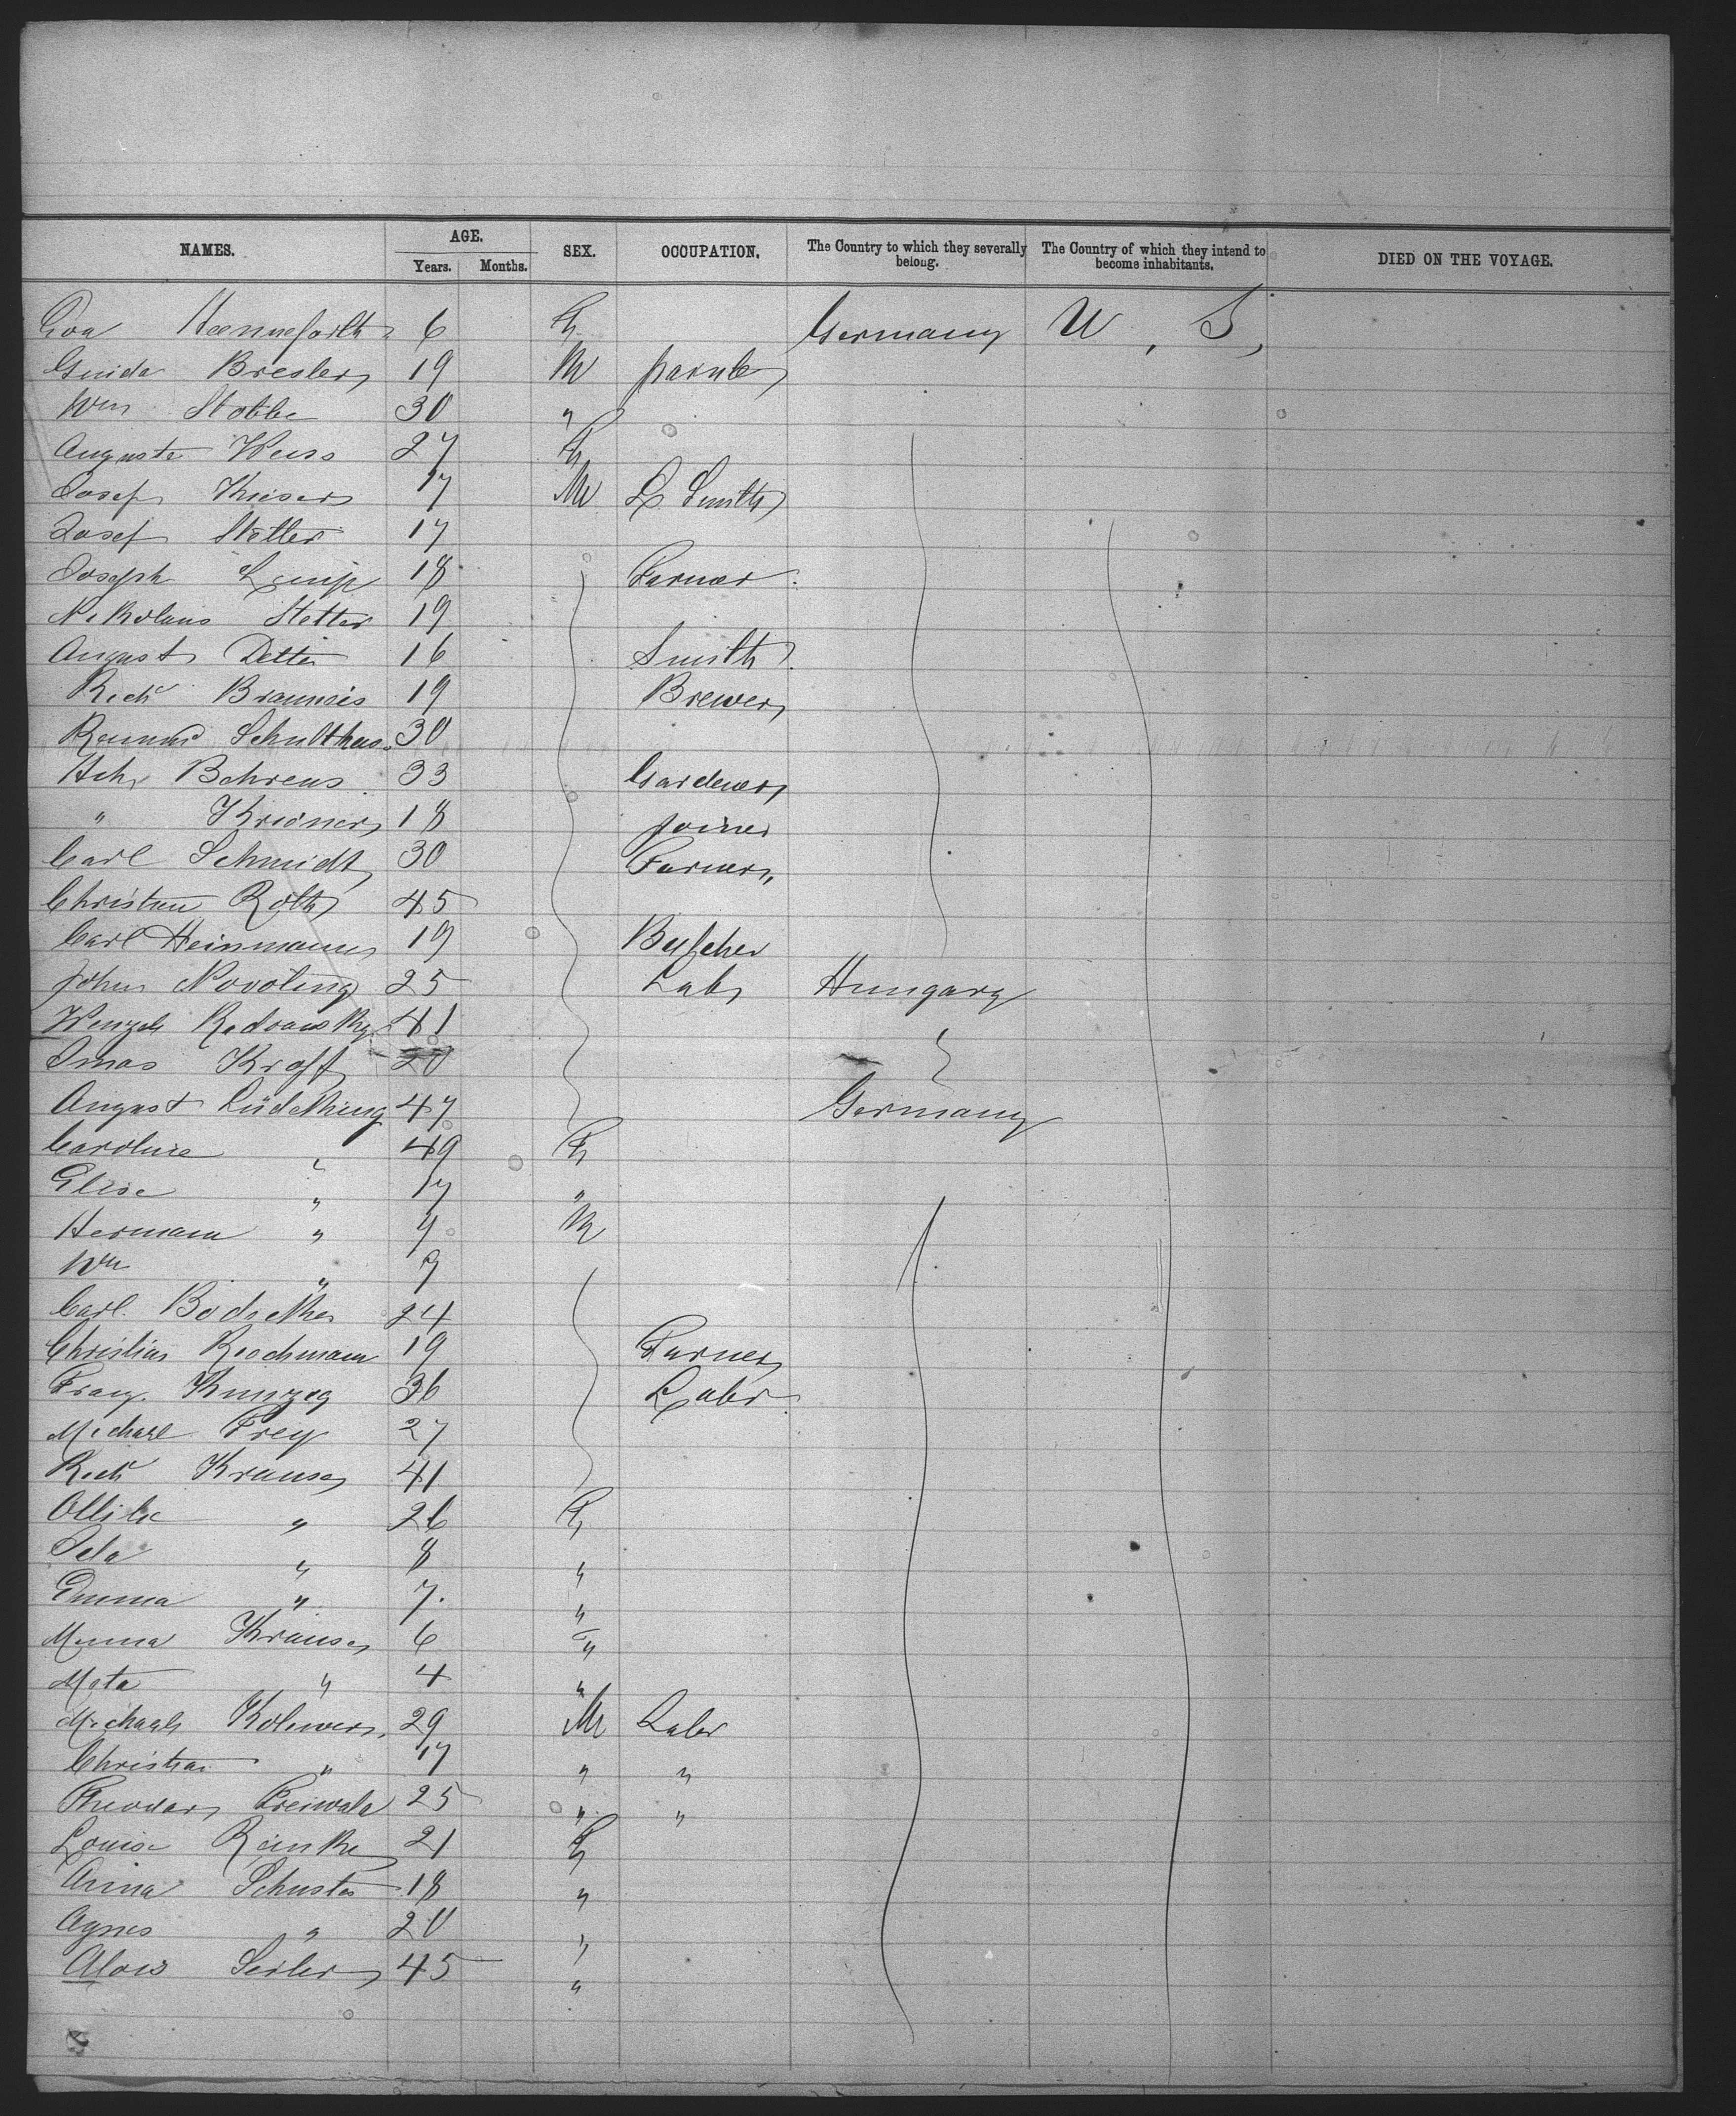 NAMES. AGE. SEX. OCCUPATION. The Country to which they severally belong. The Country of which they intend to become inhabitants. DIED ON THE VOYAGE.
Years. Months.
Eva Henneforth 6 F Germany U, S,
Guida Bresler 19 M
Wm Stobbe 30 "
Auguste Weiss 27 F
Josef Kaiser 17 M L Smith
Josef Stetter 17
Joseph 18 Farmer
Nikolaus Stetter 19
August Detter 16 Smith
Rich Brauneis 19 Brewer
Schulthas 30
Hch Behrens 33 Gardener
" 18 Joiner
Carl Schmidt 30 Farmer
Christian Roth 45
Carl Heinmann 19 Butcher
John Novoting 25 Lab Hungary
Wenzel Radransky 41
Kraft 20
August Lüdeking 47 Germany
Caroline " 49 F
Elise " 17 "
Hermann " 9 M
Wm " 7
Carl Bodecker 24
Christian Rochmann 19 Farmer
Franz Kunzeg 36 Labr
Michael Frey 27
Rich Krause 41
Ottilie " 26 F
Ida " 8 "
Emma " 7. "
Minna Krause 6 "
Meta " 4 "
Michael Kolewers 29 M Labr
Christian " 17 " "
Theodor Freiwald 25 " "
Louise Reinke 21 F
Anna Schuster 18 "
Agnes " 20 "
Alois Seiler 45 "